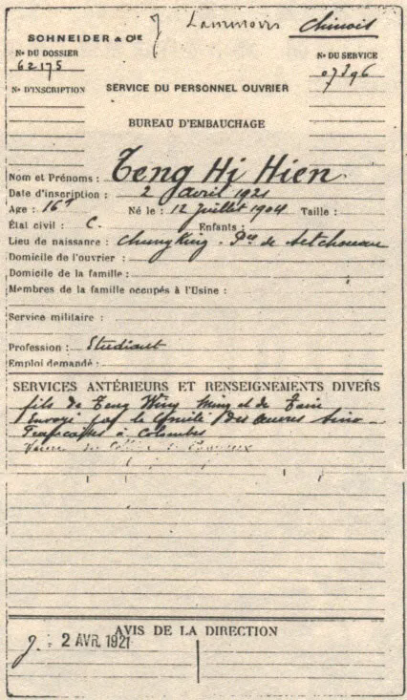 Laminoirs Chinois
SCHNEIDER & CIE
No DU DOSSIER
62175
No DU SERVICE
07396
No D'INSCRIPTION
SERVICE DU PERSONNEL OUVRIER
BUREAU D'EMBAUCHAGE
Nom et Prénoms : Teng Hi Hien
Date d'inscription : 2 avril 1921
Age : 16 Né le : 12 Juillet 1904 Taille :
État civil : C. Enfants :
Lieu de naissance : Chung King - de Setchouan
Domicile de l'ouvrier :
Domicile de la famille :
Membres de la famille occupés à l'Usine :
Service militaire :
Profession : Etudiant
Emploi demandé :
SERVICES ANTÉRIEURS ET RENSEIGNEMENTS DIVERS
fils de Teng Wing Ming et de
Envoyé par le Comité des Œuvres Sino-
Françaises à Colombes
AVIS DE LA DIRECTION
2 AVR. 1921